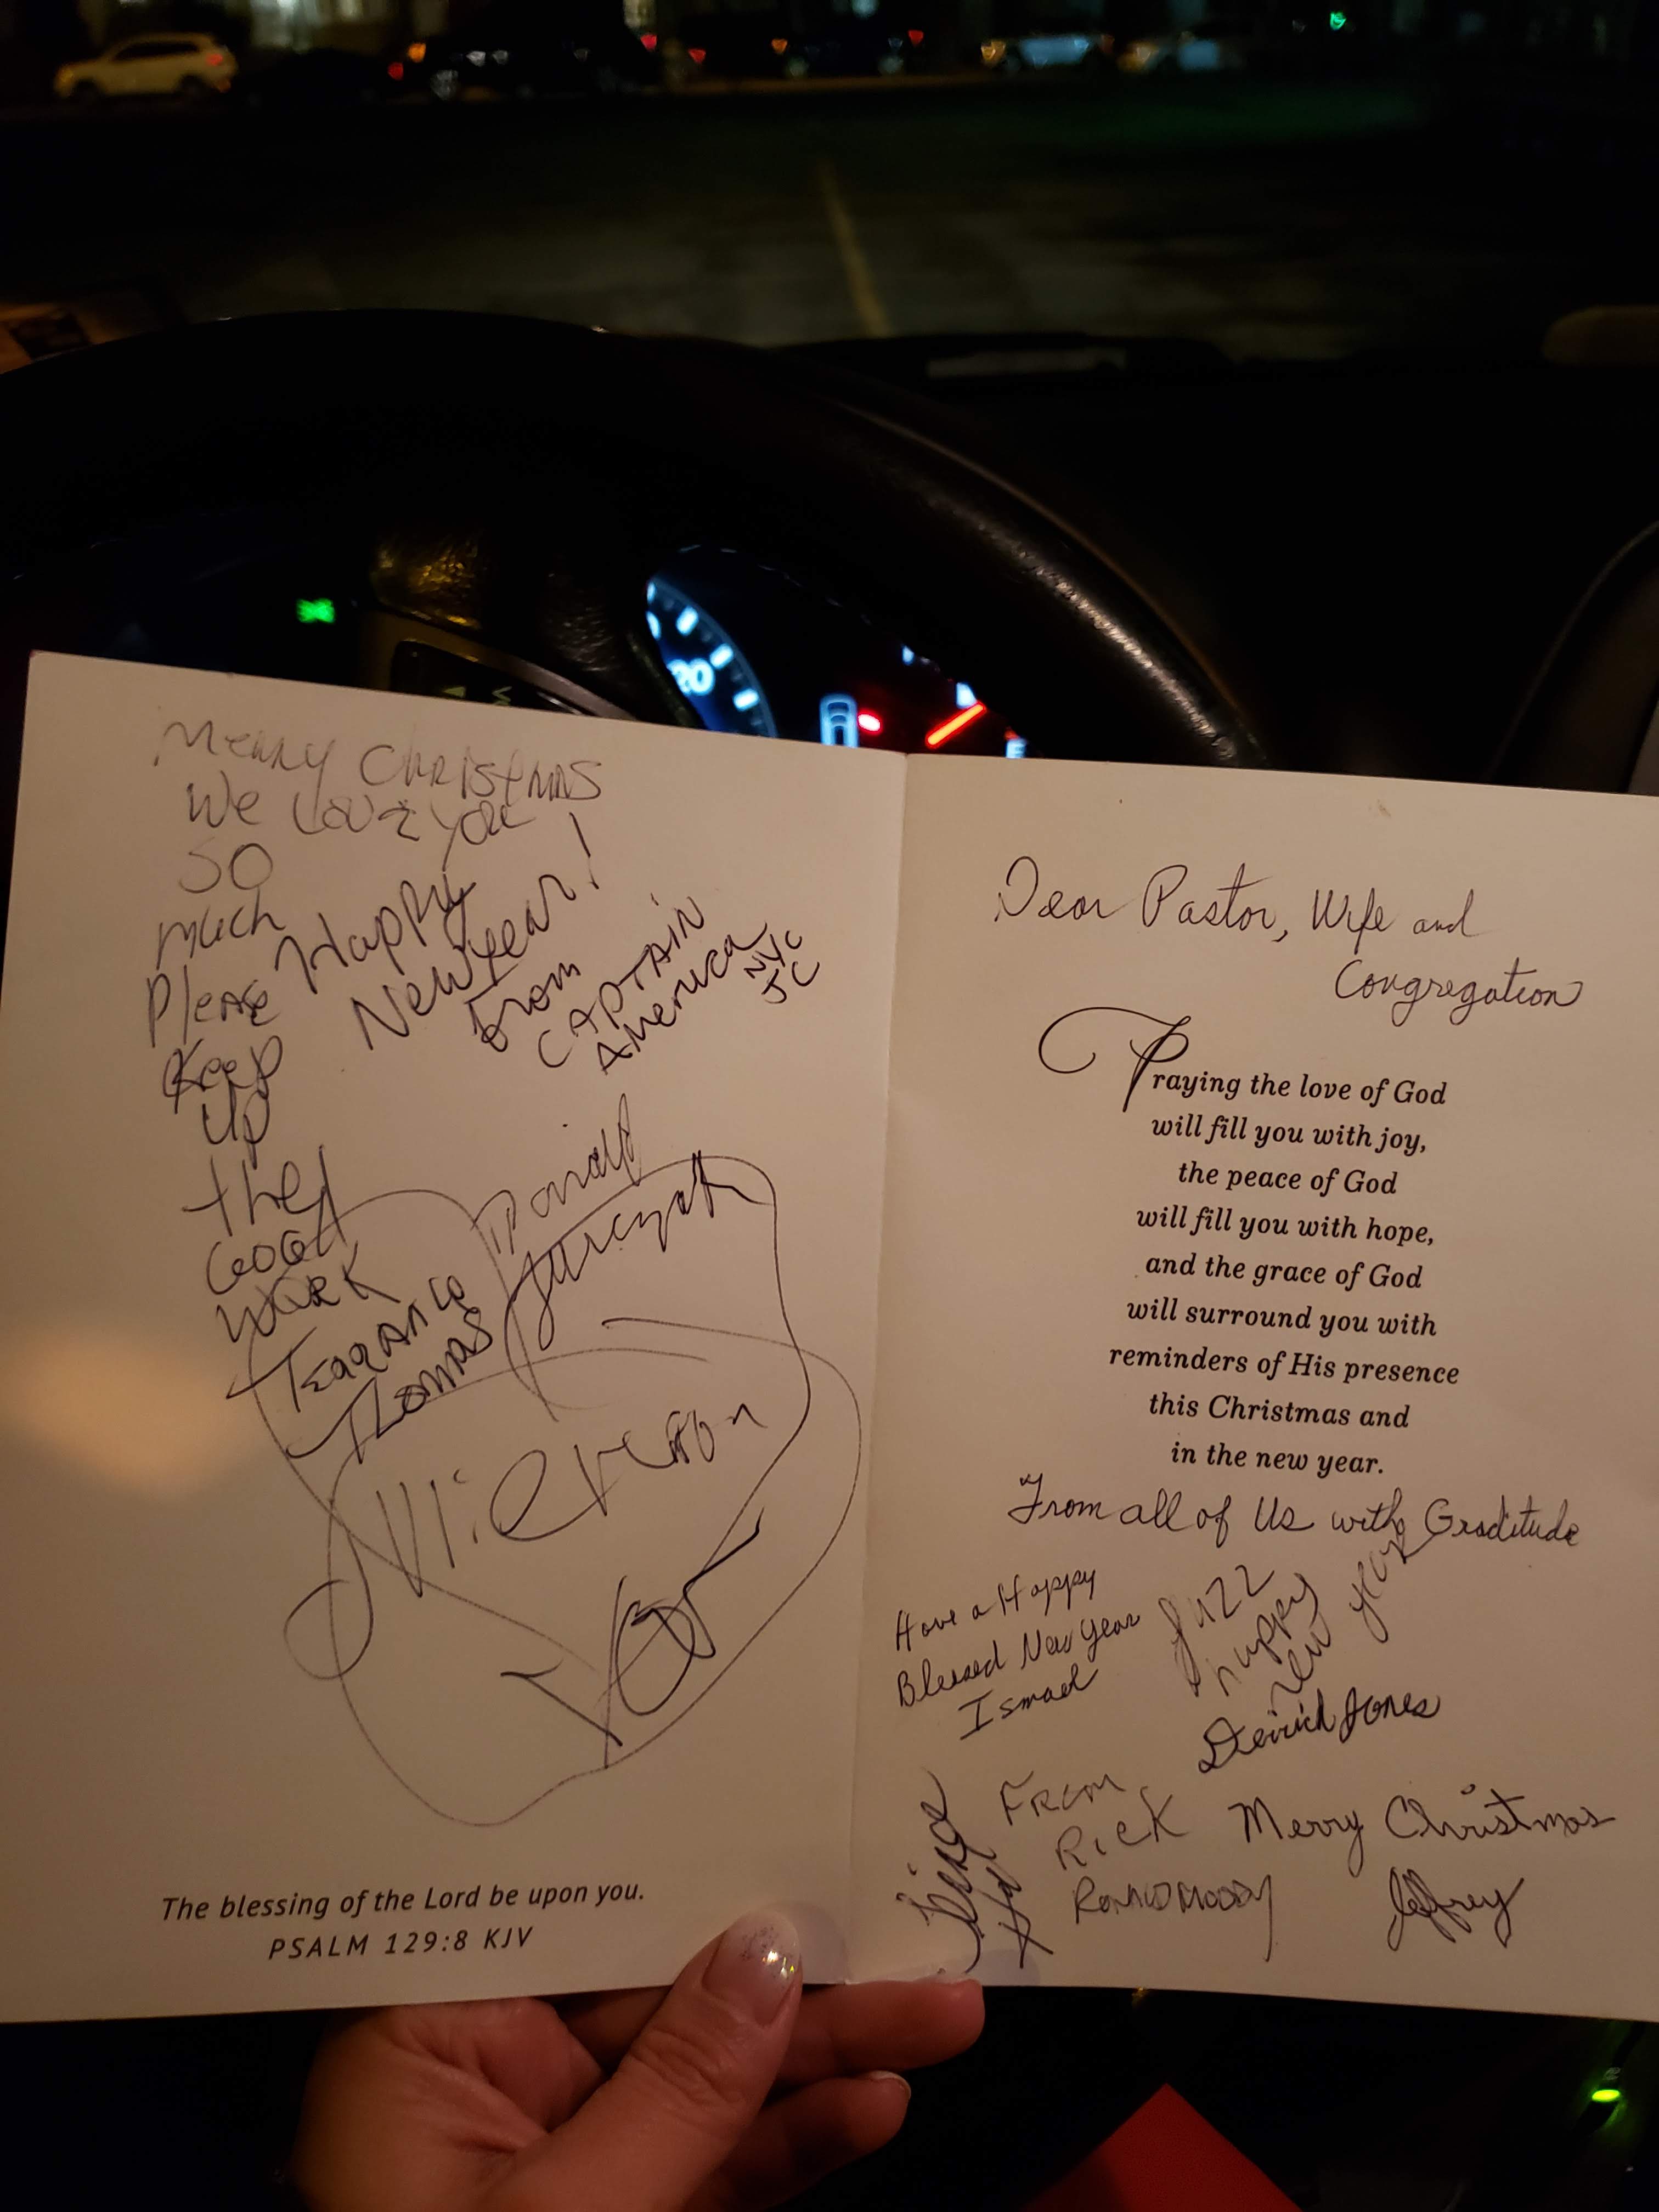 Merry Christmas
We Love You
SO
much
Please
Keep
Up
the
Good
Work
Thomas
Happy
New Year!
From
CAPTAIN
America
NYC
JC
Donald
Jurczak
The blessing of the Lord be upon you.
PSALM 129:8 KJV
Dear Pastor, Wife and
Congregation
Praying the love of God
will fill you with joy,
the peace of God
will fill you with hope,
and the grace of God
will surround you with
reminders of His presence
this Christmas and
in the new year.
From all of Us with Graditude
Have a Happy
Blessed New Year
Ismael
Juzz
happy
new year
Derrick Jones
From
Rick
Ronald Moody
Merry Christmas
Jeffrey
20
E